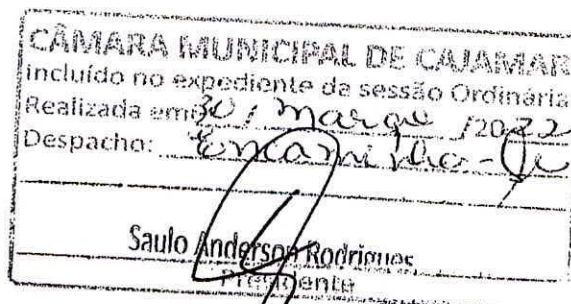 CÂMARA MUNICIPAL DE CAJAMAR
incluído no expediente da sessão Ordinária
Realizada em 30 / março /2022
Despacho: Encaminho-se
Saulo Anderson Rodrigues
Presidente